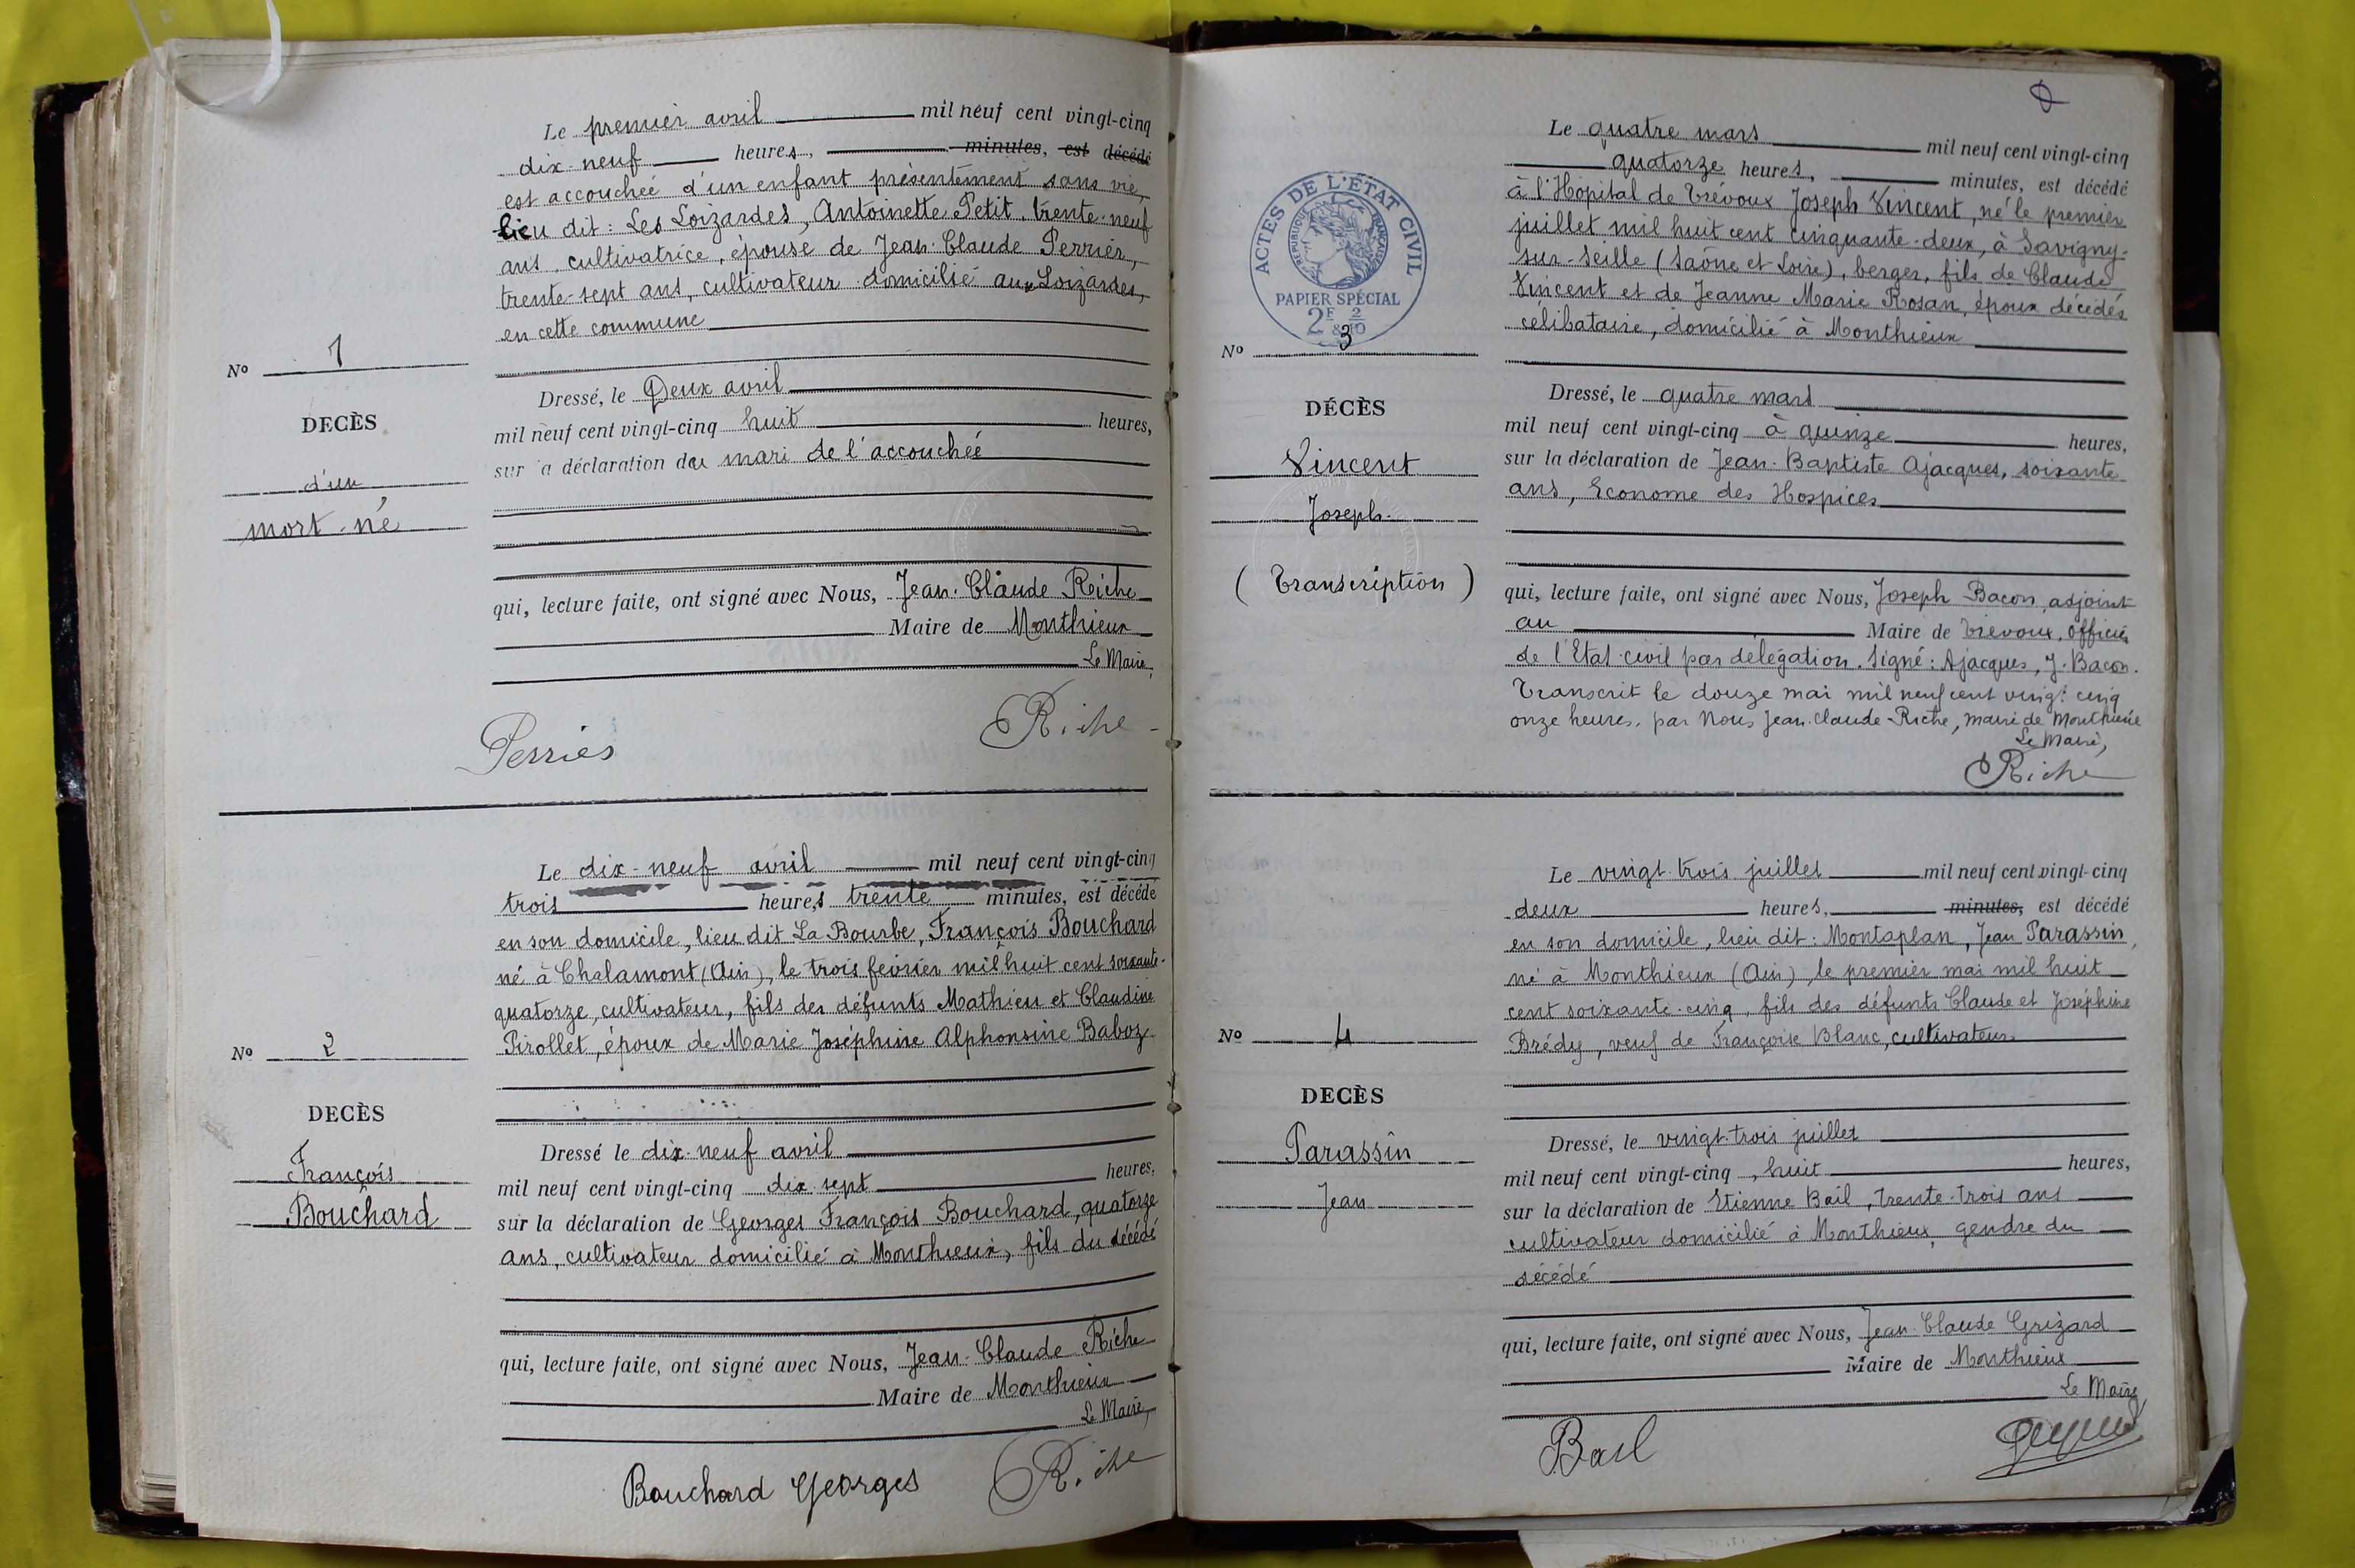 Le premier avril mil neuf cent vingt-cinq
dix-neuf heures, minutes, est décédé
est accouchée d'un enfant présentement sans vie,
lieu dit : Les Loizardes, Antoinette Petit, trente-neuf
ans, cultivatrice, épouse de Jean-Claude Perrier,
trente-sept ans, cultivateur domicilié aux Loizardes,
en cette commune
No 1
DECÈS
d'un
mort-né
Dressé, le Deux avril
mil neuf cent vingt-cinq huit heures,
sur a déclaration du mari de l'accouchée
qui, lecture faite, ont signé avec Nous, Jean-Claude Riche
Maire de Monthieux
Le Maire,
Perrier
Riche
Le dix-neuf avril mil neuf cent vingt-cinq
trois heures trente minutes, est décédé
en son domicile, lieu dit La Bourbe, François Bouchard
né à Chalamont (Ain), le trois février mil huit cent soixante-
quatorze, cultivateur, fils des défunts Mathieu et Claudine
Pirollet, époux de Marie Joséphine Alphonsine Baboz
No 2
DECÈS
François
Bouchard
Dressé le dix-neuf avril
mil neuf cent vingt-cinq dix-sept heures,
sur la déclaration de Georges François Bouchard, quatorze
ans, cultivateur domicilié à Monthieux, fils du décédé
qui, lecture faite, ont signé avec Nous, Jean-Claude Riche
Maire de Monthieux
Le Maire,
Bouchard Georges
Riche
ACTES DE L'ÉTAT CIVIL
RÉPUBLIQUE FRANÇAISE
PAPIER SPÉCIAL
2F & 2/10
Le quatre mars mil neuf cent vingt-cinq
quatorze heures, minutes, est décédé
à l'Hôpital de Trévoux Joseph Vincent, né le premier
juillet mil huit cent cinquante-deux, à Savigny-
sur-Seille (Saône et Loire), berger, fils de Claude
Vincent et de Jeanne Marie Rosan, époux décédés
célibataire, domicilié à Monthieux
No 3
DÉCÈS
Vincent
Joseph
(Transcription)
Dressé, le quatre mars
mil neuf cent vingt-cinq à quinze heures,
sur la déclaration de Jean-Baptiste Ajacques, soixante
ans, Econome des Hospices
qui, lecture faite, ont signé avec Nous, Joseph Bacon, adjoint
au Maire de Trévoux, officier
de l'Etat-civil par délégation. Signé : Ajacques, J. Bacon.
Transcrit le douze mai mil neuf cent vingt cinq
onze heures, par Nous Jean-Claude Riche, maire de Monthieux
Le Maire,
Riche
Le vingt-trois juillet mil neuf cent vingt-cinq
deux heures, minutes, est décédé
en son domicile, lieu dit : Montaplan, Jean Parassin,
né à Monthieux (Ain), le premier mai mil huit
cent soixante-cinq, fils des défunts Claude et Joséphine
Brédy, veuf de Françoise Blanc, cultivateur
No 4
DECÈS
Parassin
Jean
Dressé, le vingt-trois juillet
mil neuf cent vingt-cinq, huit heures,
sur la déclaration de Etienne Bail, trente-trois ans
cultivateur domicilié à Monthieux, gendre du
décédé
qui, lecture faite, ont signé avec Nous, Jean-Claude Grizard
Maire de Monthieux
Le Maire
Bail